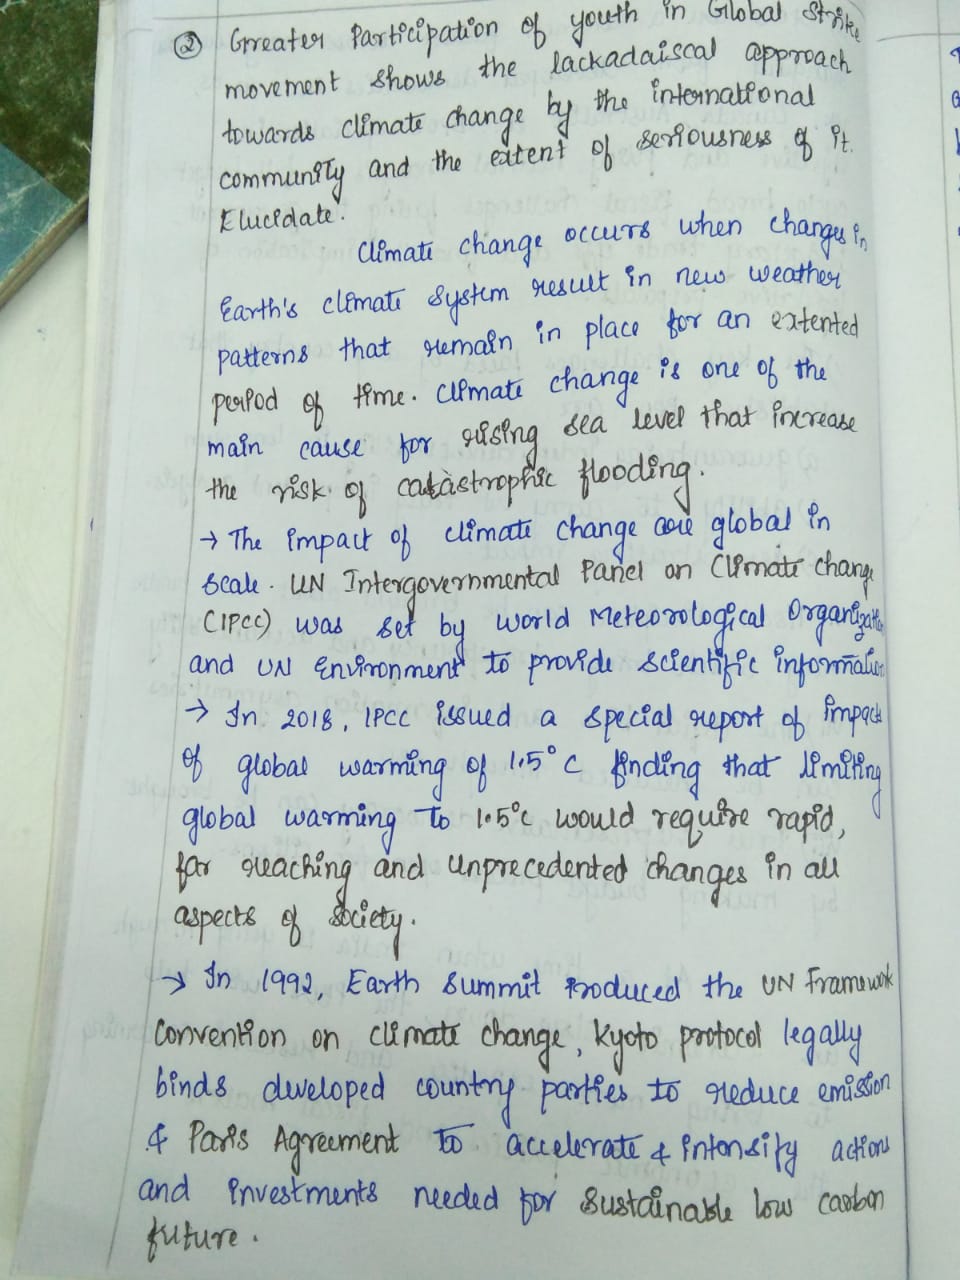 ② Greater Participation of youth in Global Strike
movement shows the lackadaiscal approach
towards climate change by the international
community and the extent of seriousness of it.
Elucidate.
Climate change occurs when changes in
Earth's climate system result in new weather
patterns that remain in place for an extented
period of time. Climate change is one of the
main cause for rising sea level that increase
the risk of catastrophic flooding.
→ The impact of climate change are global in
scale. UN Intergovernmental Panel on Climate change
(IPCC) was set by world Meteorological Organization
and UN Environment to provide scientific information
→ In 2018, IPCC issued a special report of impacts
of global warming of 1.5° C finding that limiting
global warming to 1.5°C would require rapid,
far reaching and unprecedented changes in all
aspects of society.
→ In 1992, Earth Summit Produced the UN Framework
Convention on climate change, Kyoto protocol legally
binds developed country parties to reduce emission
& Paris Agreement to accelerate & intensify actions
and investments needed for sustainable low carbon
future.